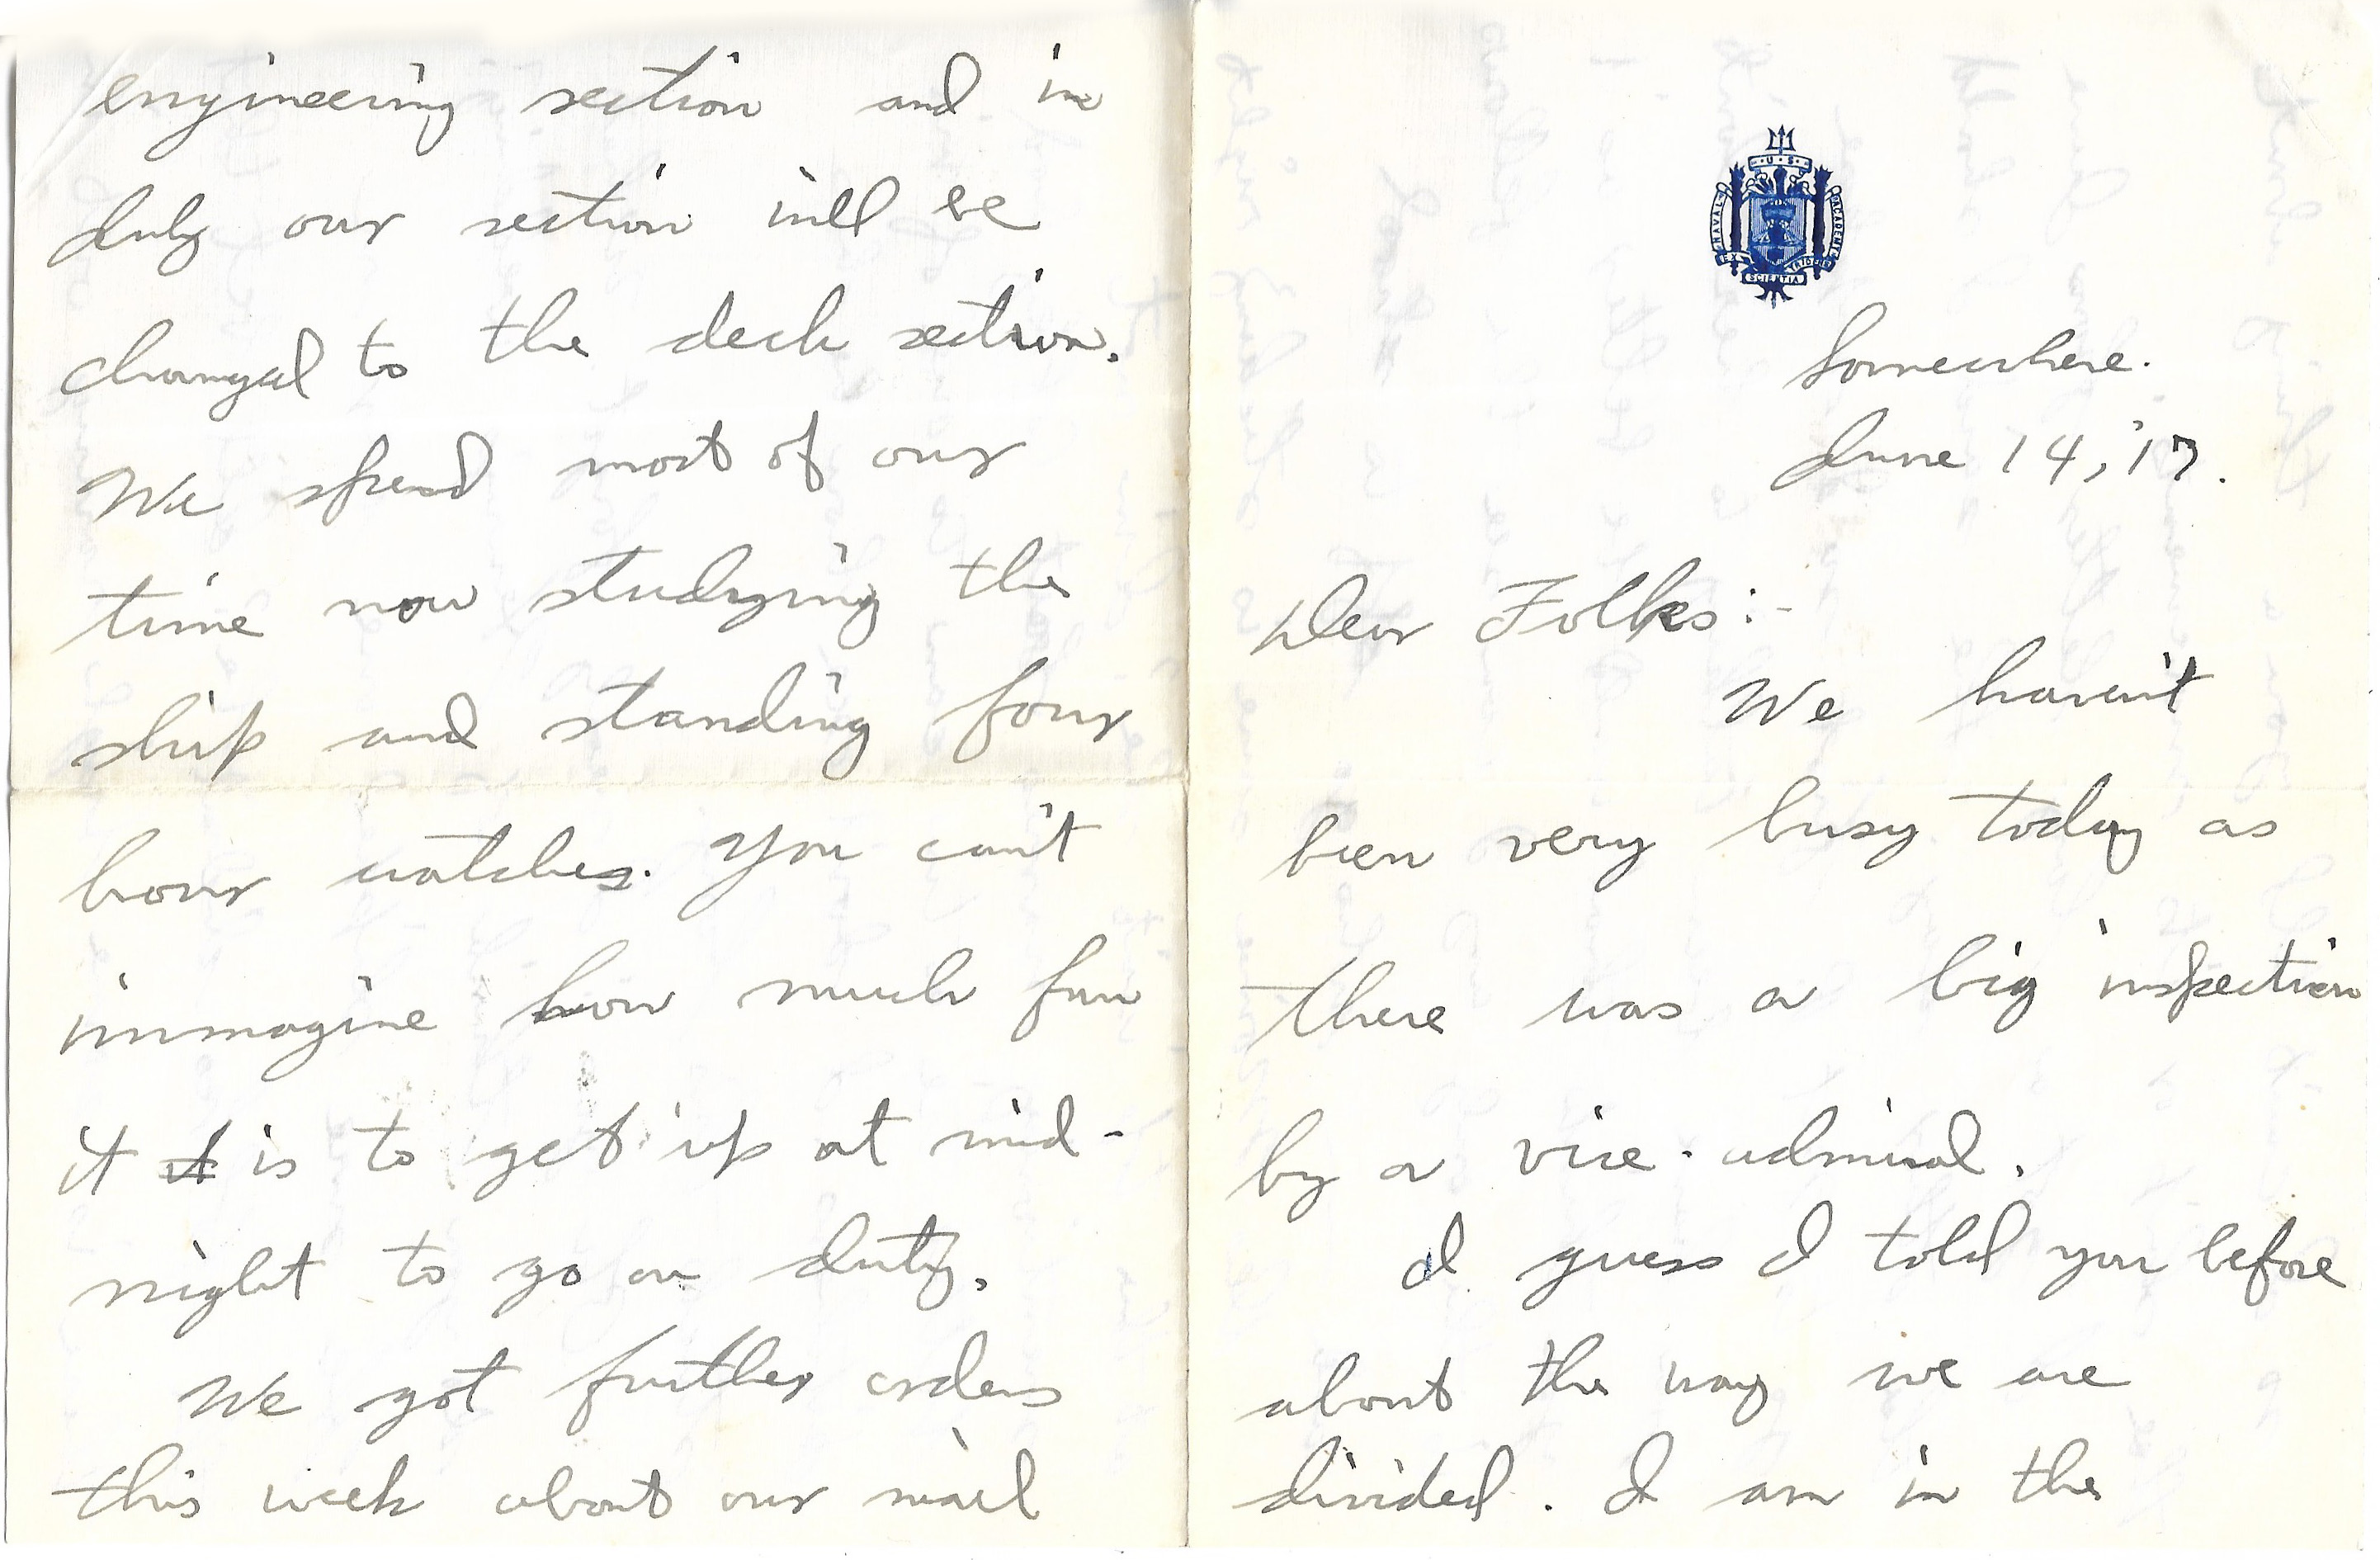 U S
NAVAL ACADEMY
EX SCIENTIA TRIDENS
Somewhere.
June 14, '17.
Dear Folks:-
We haven't
been very busy today as
there was a big inspection
by a vice-admiral.
I guess I told you before
about the way we are
divided. I am in the
engineering section and in
July our section will be
changed to the deck section.
We spend most of our
time now studying the
ship and standing four
hour watches. You can't
immagine how much fun
it it is to get up at mid-
night to go on duty.
We got further orders
this week about our mail